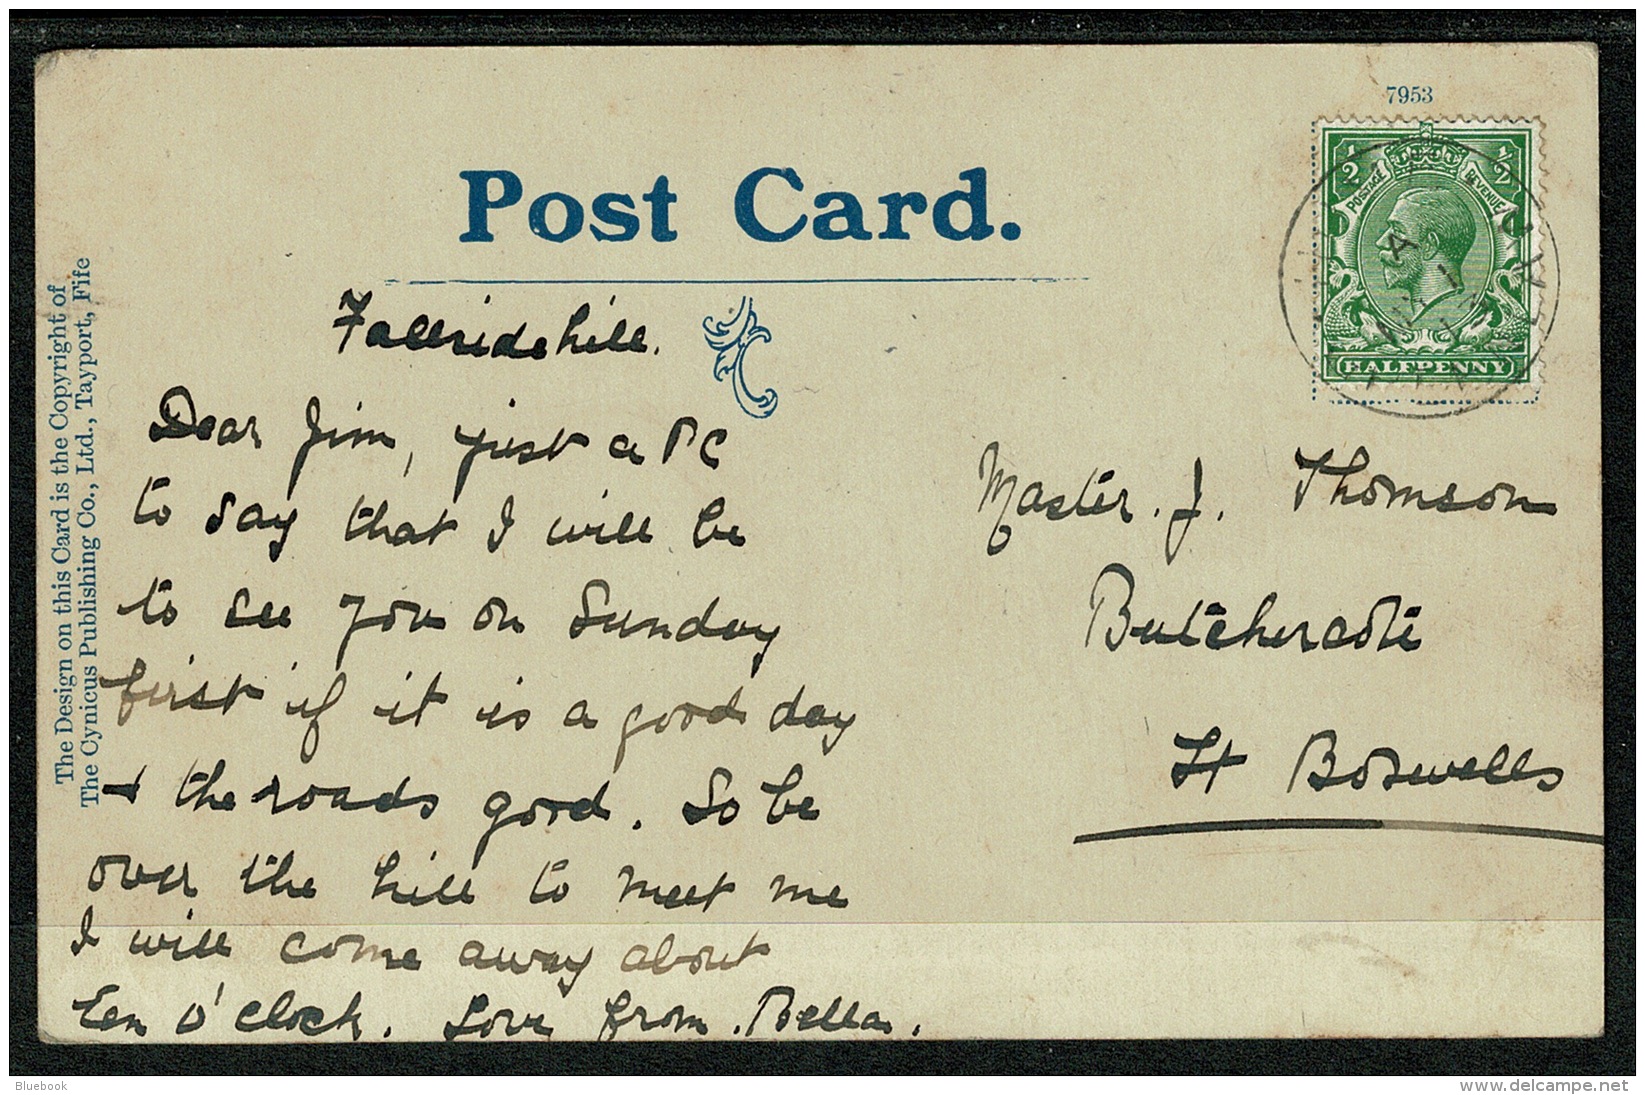 7953
Post Card.
½ ½
POSTAGE REVENUE
HALFPENNY
The Design on this Card is the Copyright of
The Cynicus Publishing Co., Ltd., Tayport, Fife
Fallsidehill.
Dear Jim, just a PC
to say that I will be
to see you on Sunday
first if it is a good day
+ the roads good. So be
over the hill to meet me
I will come away about
Ten O'Clock. Love from. Bella.
Master. J. Thomson
Butchercote
St Boswells
Bluebook
www.delcampe.net